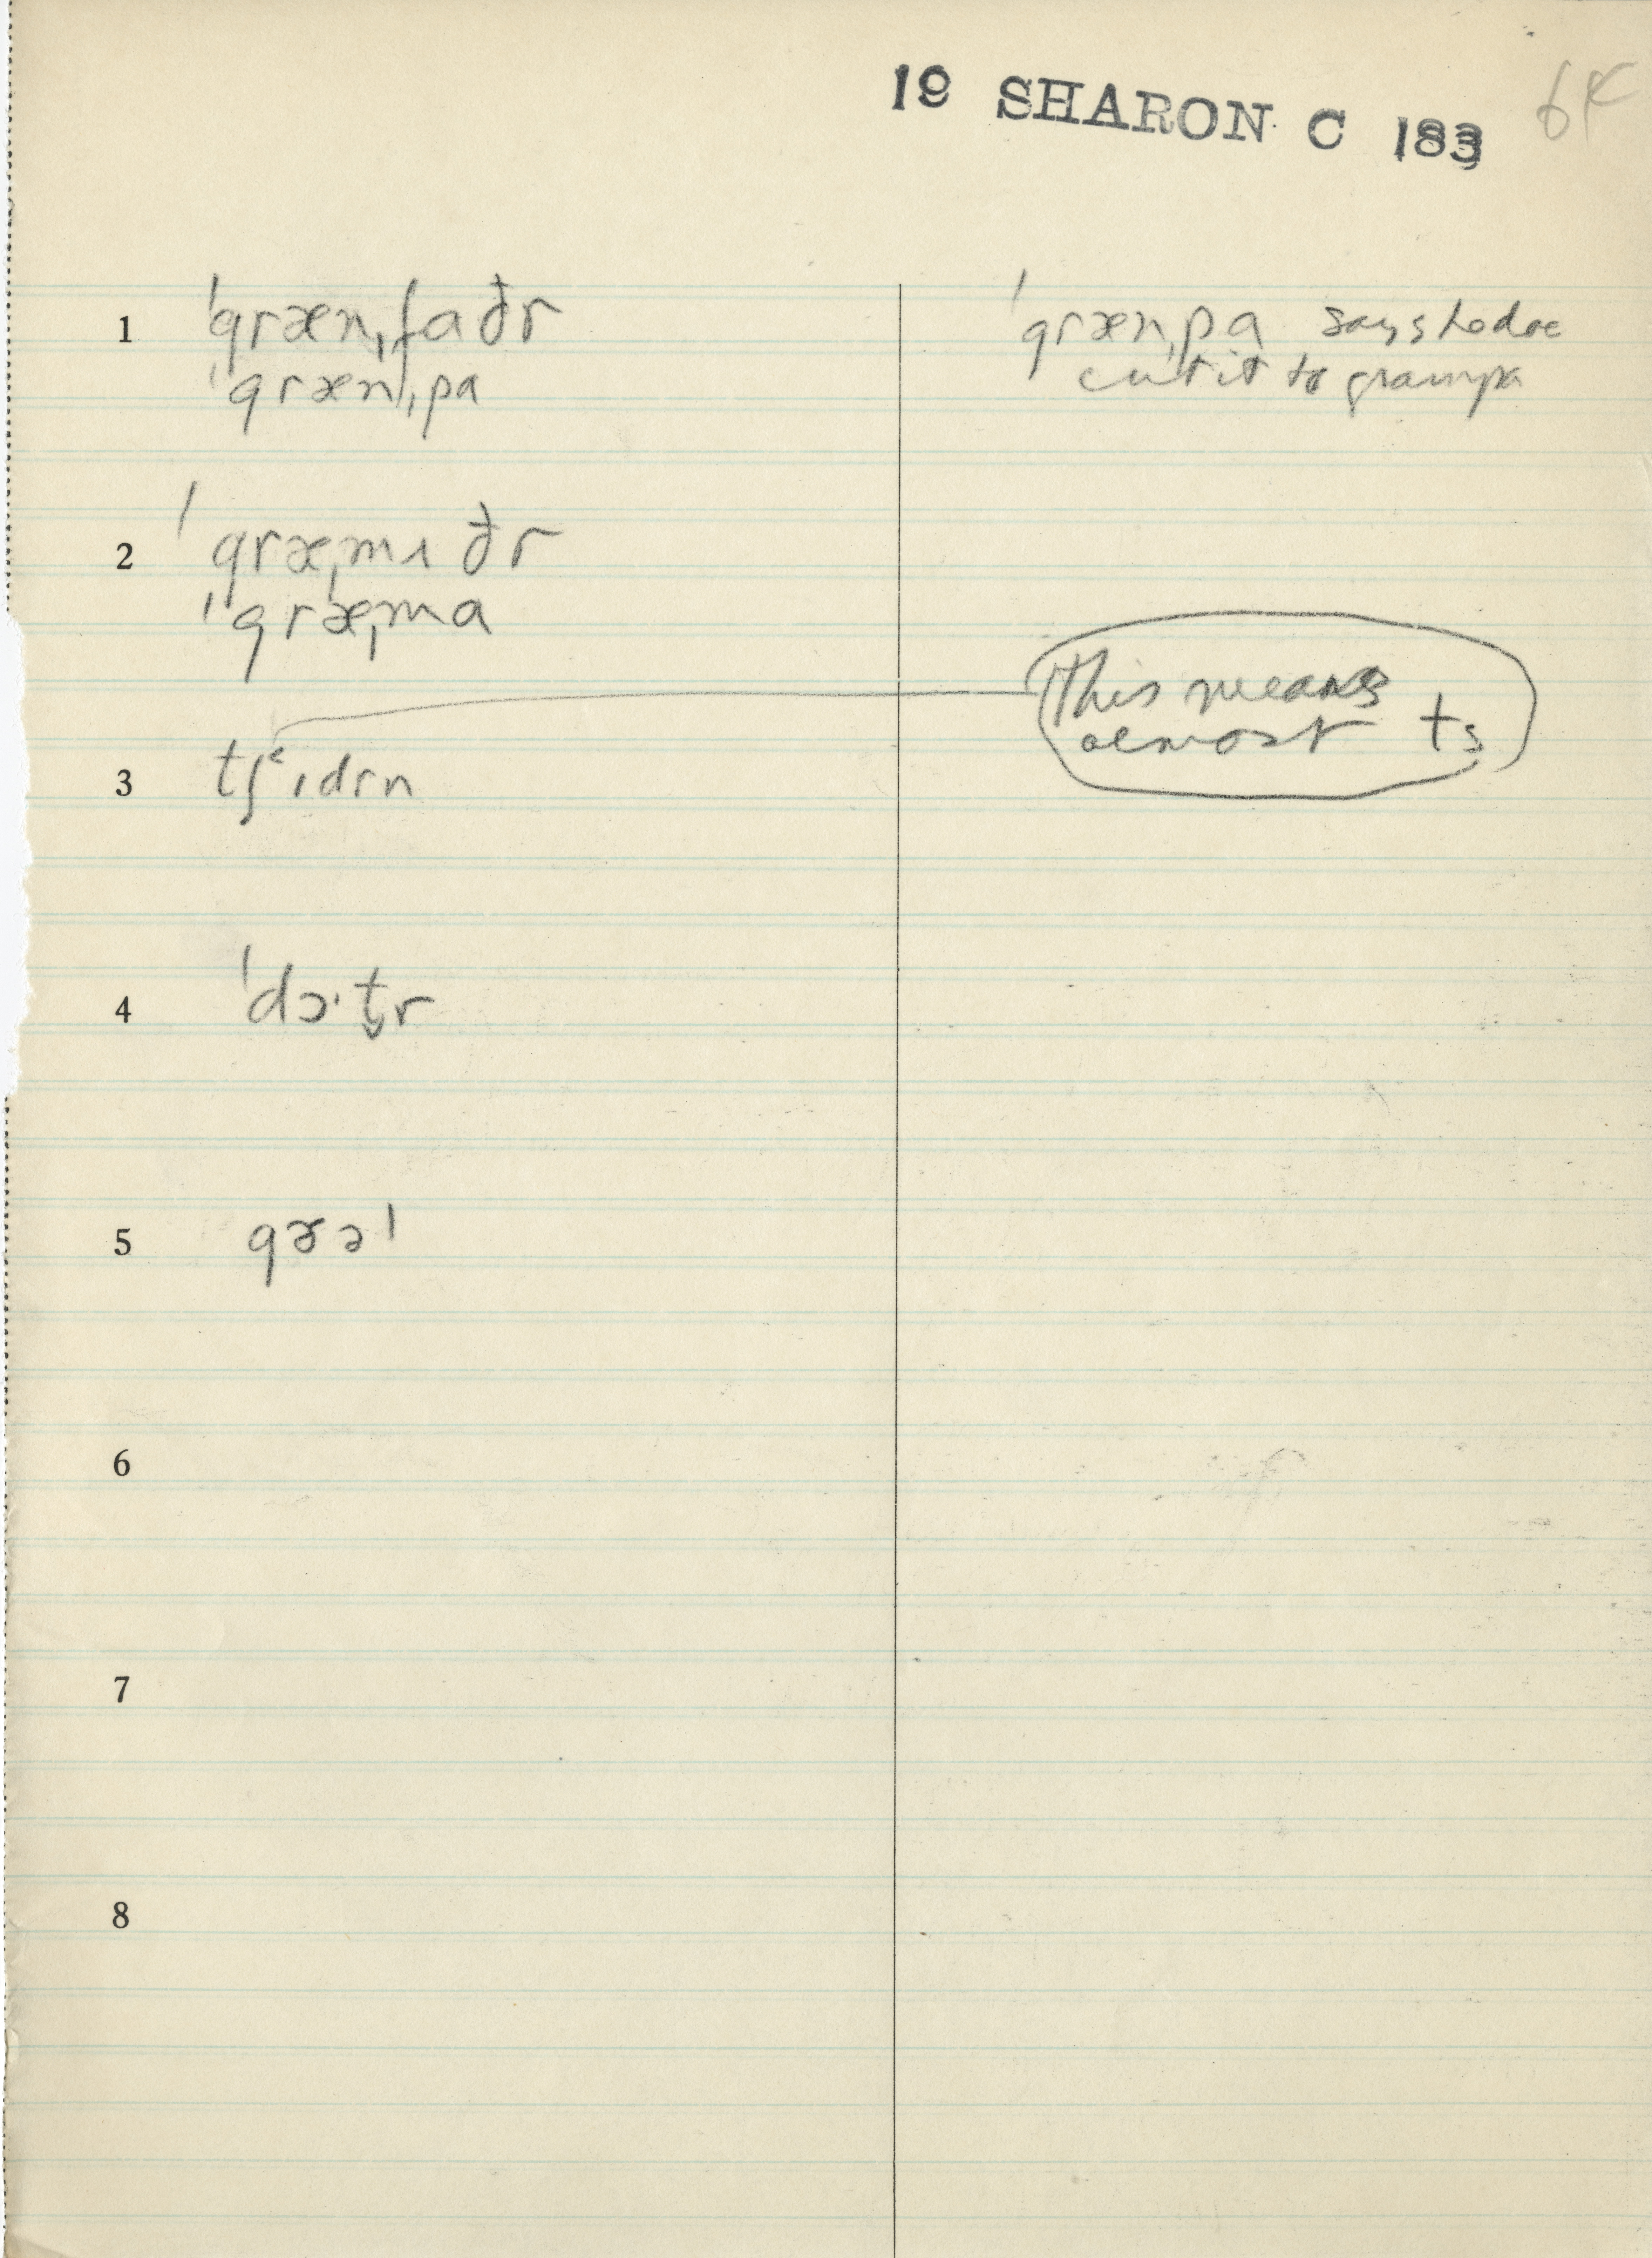 19 SHARON C 183
64
1 ˈgræn,faðr
ˈgræn,pa
ˈgræn,pa says
cut it to grampa
2 ˈgræ,mʌðr
ˈgræ,ma
This means
almost ts
3 tʃ˂ɪdrn
4 ˈdɔ·t̬r
5 gɚəl
6
7
8